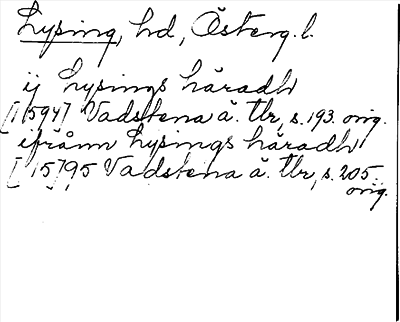 Lysing, hd, Österg.l.
ij Lysings häradh
[1594] Vadstena ä. tbr, s. 193. orig.
ifrånn Lysings häradh
[15]95 Vadstena ä. tbr, s. 205.
orig.